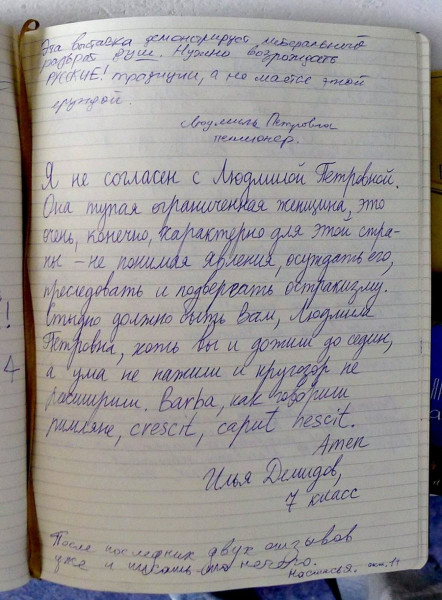 Эта выставка демонстрирует
разврат душ. Нужно возрождать
РУССКИЕ! традиции, а не этой
ерундой.
Людмила Петровна
пенсионер.
Я не согласен с Людмилой Петровной.
Она тупая ограниченная женщина, это
очень, конечно, характерно для этой стра-
ны – не понимая явления, осуждать его,
преследовать и подвергать остракизму.
Стыдно должно быть Вам, Людмила
Петровна, хоть вы и дожили до седин,
а ума не нажили и кругозор не
расширили. Barba, как говорили
римляне, crescit, caput nescit.
Amen
!
4
Илья Демидов,
7 класс
После последних двух отзывов
уже и писать-то нечего.
Настасья.